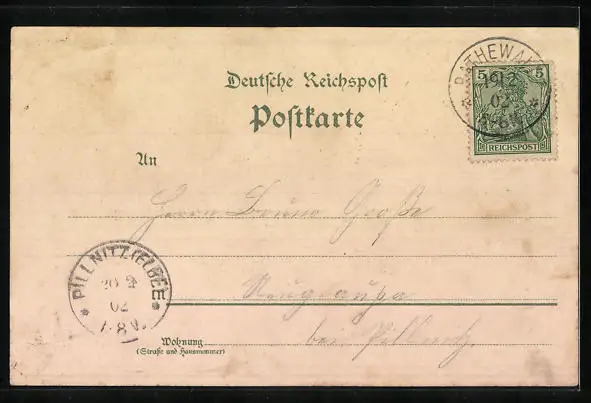 Deutsche Reichspost
Postkarte
RATHEWALDE
19 2
02
5 5
REICHSPOST
An
Herrn Bruno Große
PILLNITZ (ELBE)
20 2
02
7-8V.
bei Pillnitz
Wohnung
(Straße und Hausnummer)